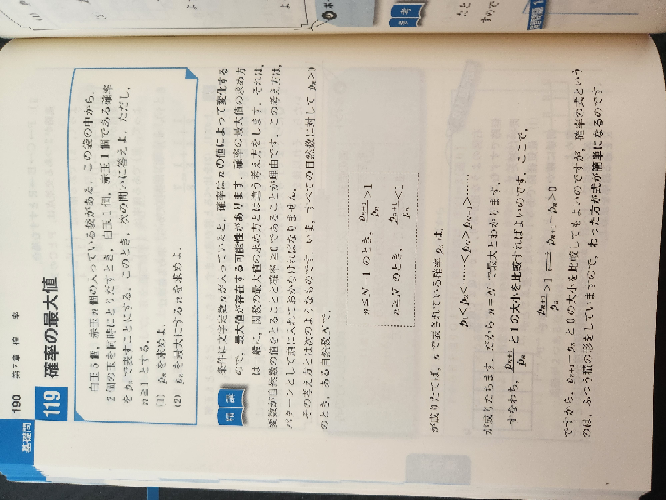 190 第7章 確 率
基礎問
119 確率の最大値
白玉5個，赤玉n個の入っている袋がある．この袋の中から，
2個の玉を同時にとりだすとき，白玉1個，赤玉1個である確率
をpₙで表すことにする．このとき，次の問いに答えよ．ただし，
n≧1とする．
(1) pₙを求めよ．
(2) pₙを最大にするnを求めよ．
精講
条件に文字定数nが入っていると，確率はnの値によって変化する
ので，最大値が存在する可能性があります．確率の最大値の求め方
は一般に，関数の最大値の求め方とは違う考え方をします．それは，
変数が自然数の値をとることと確率≧0であることが理由です．この考え方は，
パターンとして頭に入れておかなければなりません．
その考え方とは次のようなものです．いま，すべての自然数nに対してpₙ>0
のとき，ある自然数Nで，
n≦N−1のとき，pₙ₊₁/pₙ>1
n≧Nのとき，pₙ₊₁/pₙ<1
が成りたてば，nで表されている確率pₙは，
p₁<p₂<……<p_N>p_N₊₁>……
が成りたちます．だから n=N で最大とわかります．
すなわち，pₙ₊₁/pₙと1の大小を比較すればよいのです．ここで，
pₙ₊₁/pₙ>1 ⇄ pₙ₊₁−pₙ>0
ですから，pₙ₊₁−pₙと0の大小を比較してもよいのですが，確率の式という
のは，ふつう積の形をしていますので，わった方が式が簡単になるのです．
参考